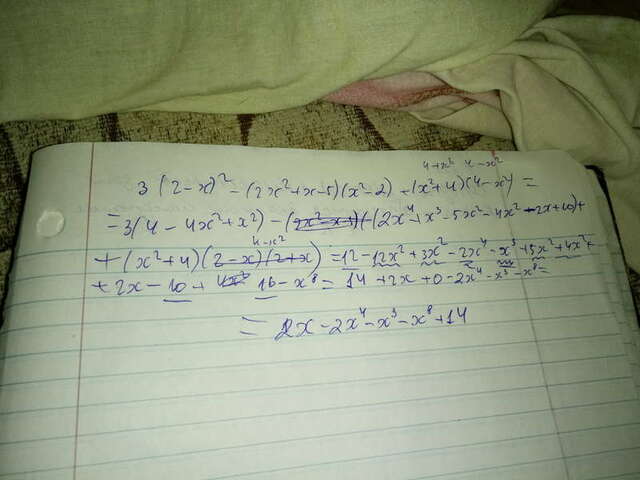 4+x² 4-x²
3(2-x)² - (2x²+x-5)(x²-2) + (x²+4)(4-x²) =
= 3(4-4x²+x²) - (2x⁴+x³-5x²-4x²-2x+10)+
4-x²
+ (x²+4)(2-x)(2+x) = 12-12x²+3x²-2x⁴-x³+5x²+4x²+
+ 2x-10+ 16-x⁸ = 14+2x+0-2x⁴-x³-x⁸=
= 2x-2x⁴-x³-x⁸+14